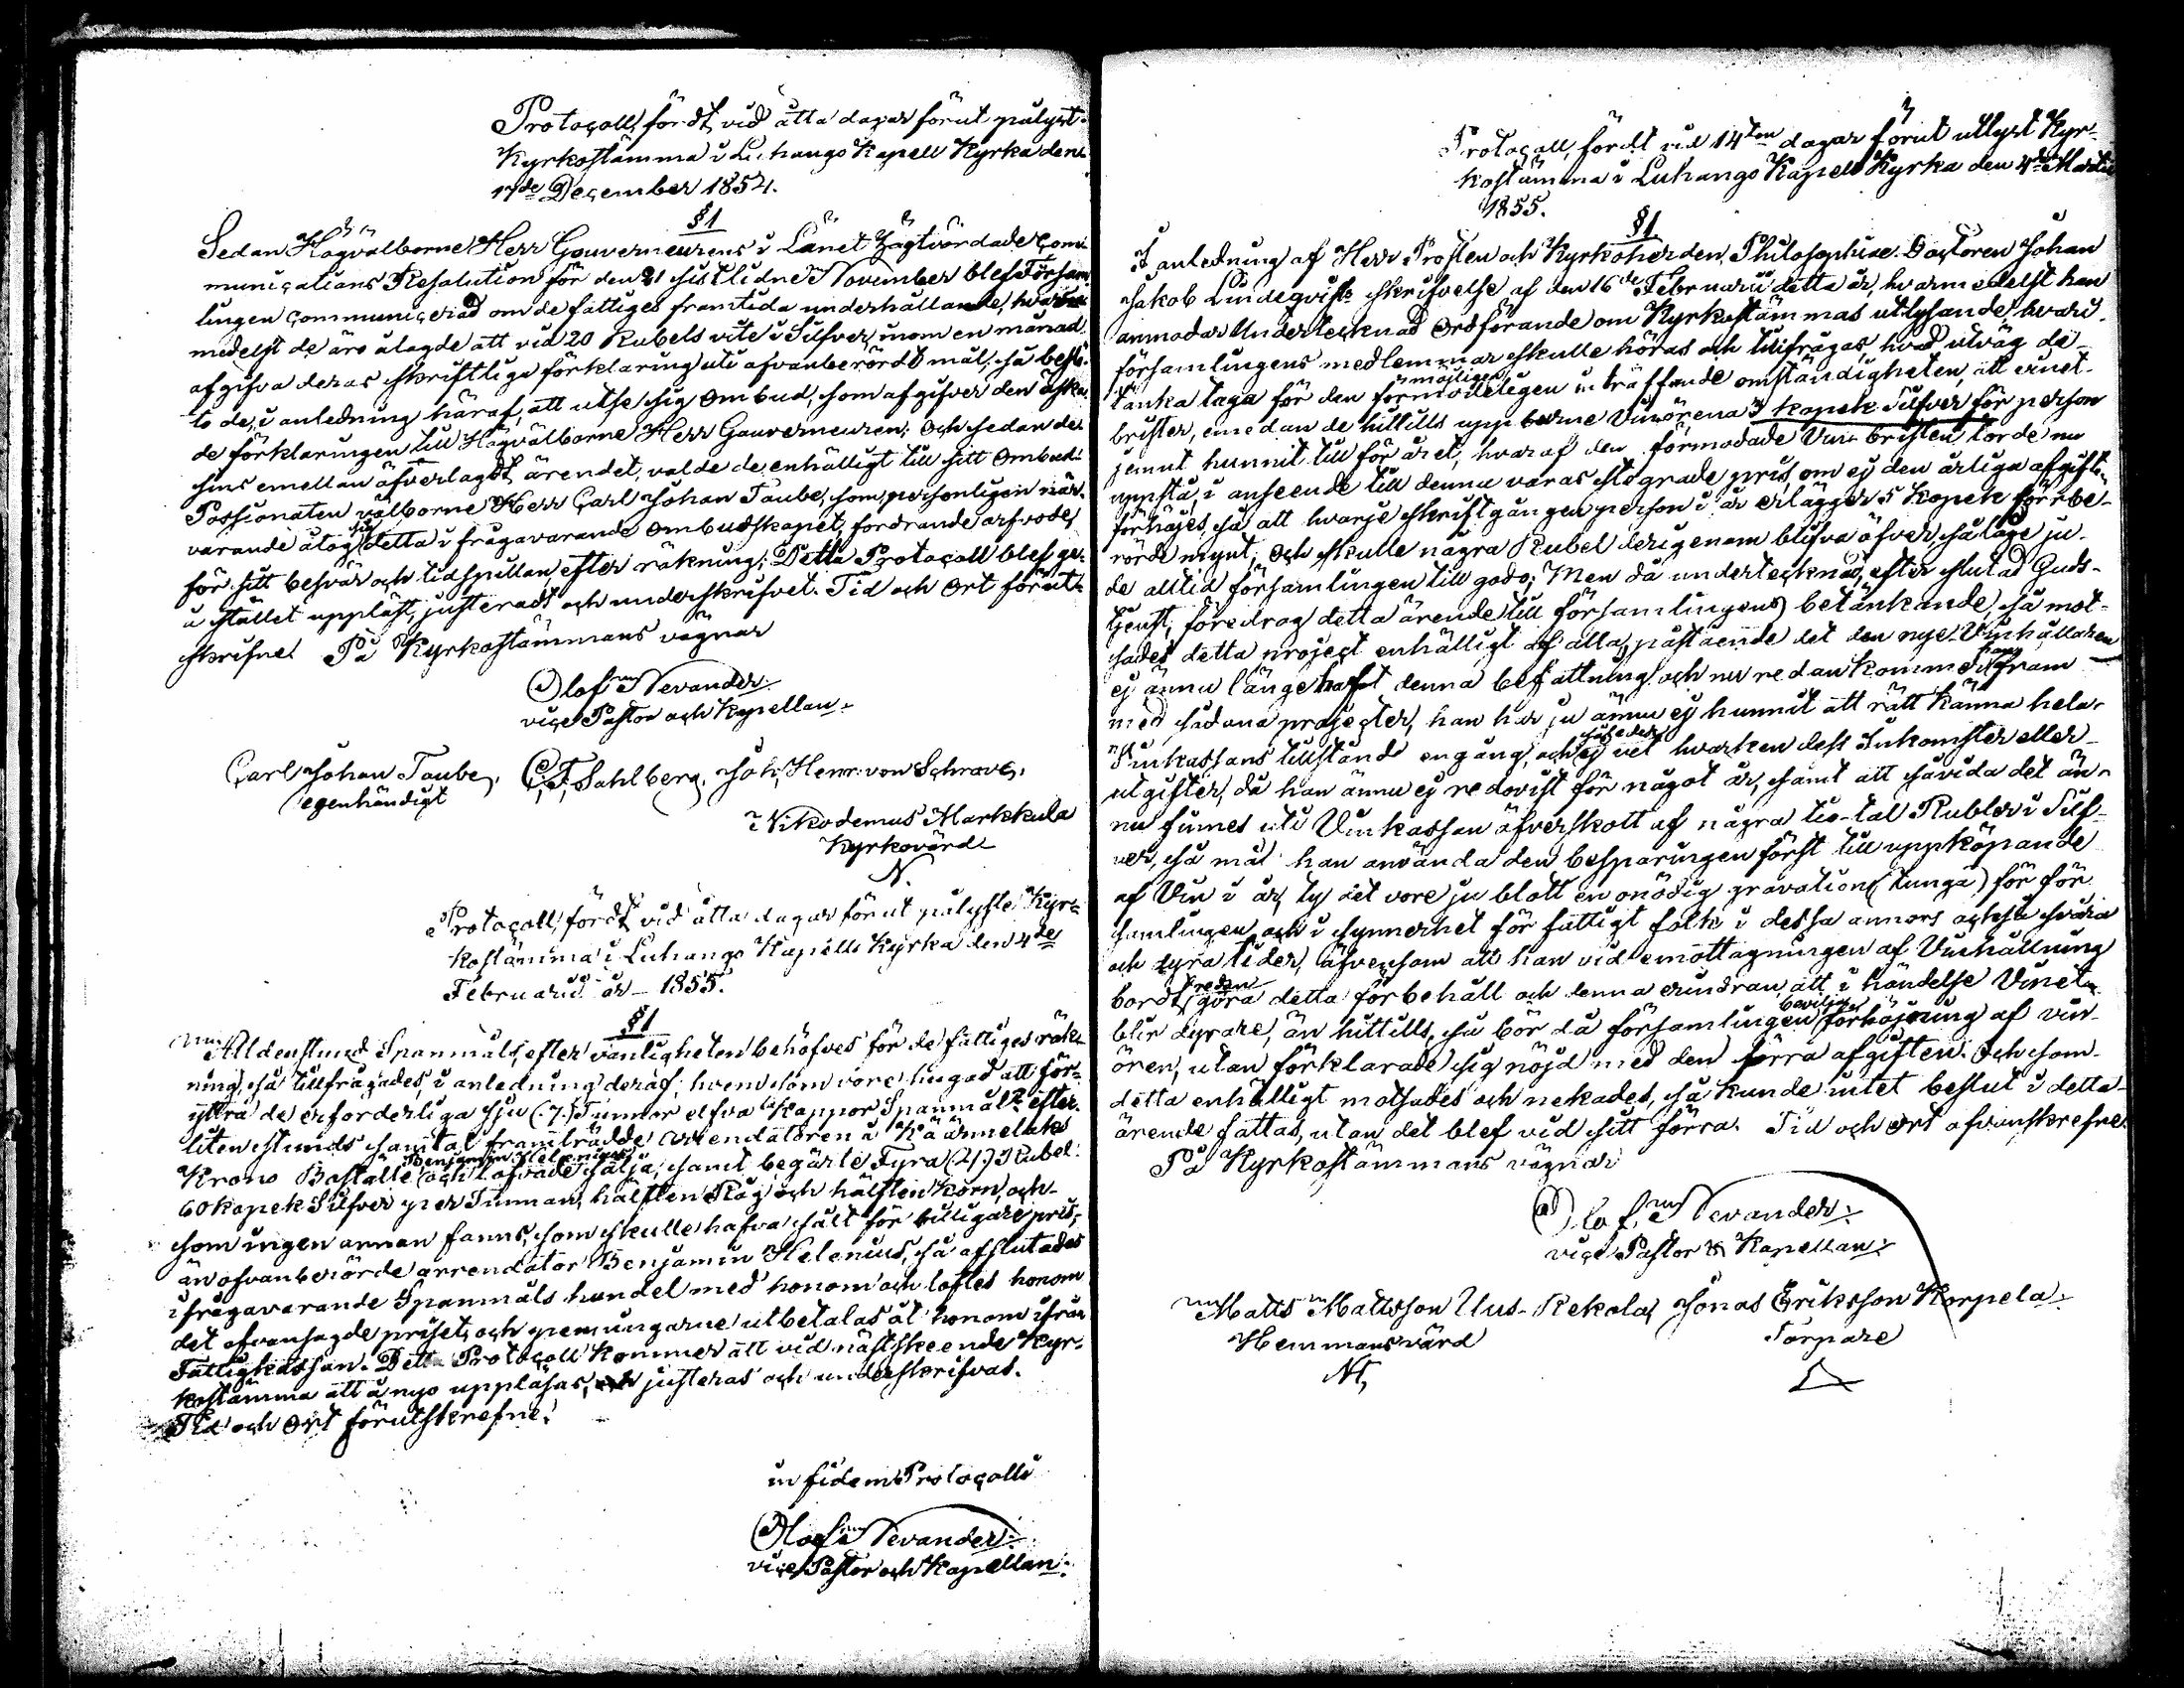 Protocoll, fördt vid åtta dagar förut pålyst
Kyrkostämma i Luhango Kapell Kyrka den
17de December 1854.
§1
Sedan Högvälborne Herr Gouverneurens i Länet högtvördade Com-
munications Resolution för den 21 sistlidne November blef Försam-
lingen Communicerad om de fattiges framtida underhållande, hvar-
medelst de äro ålagde att vid 20 Rubels vite i Silfver, inom en månad
afgifva deras skriftliga förklaring uti ofvanberörde mål, så beslö-
to de, i anledning häraf, att utse sig Ombud, som afgifver den äska-
de förklaringen till Högvälborne Herr Gouverneuren; Och sedan de
sins emellan öfverlagdt ärendet, valde de enhälligt till sitt Ombud
Possionaten välborne Herr Carl Johan Taube, som, personligen när-
varande åtog sig detta i frågavarande Ombudskapet, fordrande arfvode
för sitt besvär och tidspillan, efter räkning; Detta Protocoll blef ge-
nast i stället uppläst, justeradt och underskrifvet. Tid och Ort förut-
skrifne. På Kyrkostämmans vägnar
Olof Nevander
vice Pastor och Kapellan.
Carl Johan Taube, C. F. Sahlberg. Joh: Henr: von Schrove,
egenhändigt
Nikodemus Markkula
Kyrkovärd
N.
Protocoll, fördt vid åtta dagar förut pålyste Kyr-
kostämma i Luhango Kapells Kyrka den 4de
Februarii år 1855.
§1
Alldenstund Spanmål, efter vanligheten behöfves för de fattiges räk-
ning, så tillfrågades, i anledning deraf, hvem som vore hugad att för-
yttra de erforderliga sju (:7:) Tunnor elfva Kappor Spanmål? Efter
liten stunds samtal framträdde Arrendatoren å Käärmelaks
Krono Boställe Benjamin Helenius och lofvade sälja, samt begärte Fyra (:4:) Rubel
60 kopek Silfver per Tunnan, hälften Råg och hälften Korn, och
som ingen annan fanns, som skulle hafva sålt för billigare pris,
än ofvanberörde arrendator Benjamin Helenius, så afslutades
ifrågavarande Spanmåls handel med honom och loftes honom
det ofvansagde priset, och penningarne utbetalas åt honom ifrån
Fattigkassan. Detta Protocoll kommer att vid nästskeende Kyr-
kostämma att å nyo uppläsas, justeras och underskrifvas.
Tid och Ort förutskrefne.
in fidem Protocolli
Olof Nevander
vice Pastor och Kapellan.
Protocoll, fördt vid 14ton dagar förut utlyst Kyr-
kostämma i Luhango Kapell Kyrka den 4de Martii
1855.
§1
I anledning af Herr Prosten och Kyrkoherden, Philosophiae Doctoren Johan
Jakob Lindeqvists skrifvelse af den 16de Februarii detta år, hvarmedelst han
anmodar Undertecknad Ordförande om Kyrkostämmas utlysande, hvari
församlingens medlemmar skulle höras och tillfrågas, hvad utväg de
tänka taga för den möjligen inträffande omständigheten, att vinet
brister, emedan de hittills uppburne Vinörena 3 kopek Silfver för person
jemnt hunnit till för året, hvaraf den förmodade Vinbristen torde nu
uppstå, i anseende till denna varas stegrade pris, om ej den årliga afgiften
förhöjes, så att hvarje skriftgången person i år erlägger 5 kopek förbe-
rörde mynt; Och skulle några Rubel derigenom blifva öfver, så låge ju
de alltid församlingen till godo; Men då undertecknad, efter slutad Guds-
tjenst, föredrog detta ärende till församlingens betänkande, så mot-
sades detta project enhälligt af alla, påstående det den nye Vinhållaren
ej ännu länge haft denna befattning och nu redan kommer han fram
med sådana projecter, han har ju ännu ej hunnit att rätt känna hela
Vinkassans tillstånd engång, och således ej vet hvarken dess Inkomster eller
utgifter, då han ännu ej redovist för något år, samt att såvida det än-
nu finnes uti Vinkassan öfverskott af några tio-tal Rubler i Silf-
ver, så må han använda den besparingen först till uppköpande
af Vin i år, ty det vore ju blott en onödig gravation (tunga) för för-
samlingen och i synnerhet för fattigt folk i dessa annors också svåra
och dyra tider, äfvensom att han vid emottagningen af Vinhållning
bordt redan göra detta förbehåll och denna erindran, att i händelse Vinet
blir dyrare, än hittills, så bör då församlingen bevilja förhöjning af vin-
ören, utan förklarade sig nöjd med den förra afgiften. Och som
detta enhälligt motsades och nekades, så kunde intet beslut i detta
ärende fattas, utan det blef vid sitt förra. Tid och Ort ofvanskrefne.
På Kyrkostämmans vägnar
Olof Nevander
vice Pastor & Kapellan.
Matts Mattsson Uus-Rekola, Jonas Eriksson Korpela.
Hemmansvärd Torpare